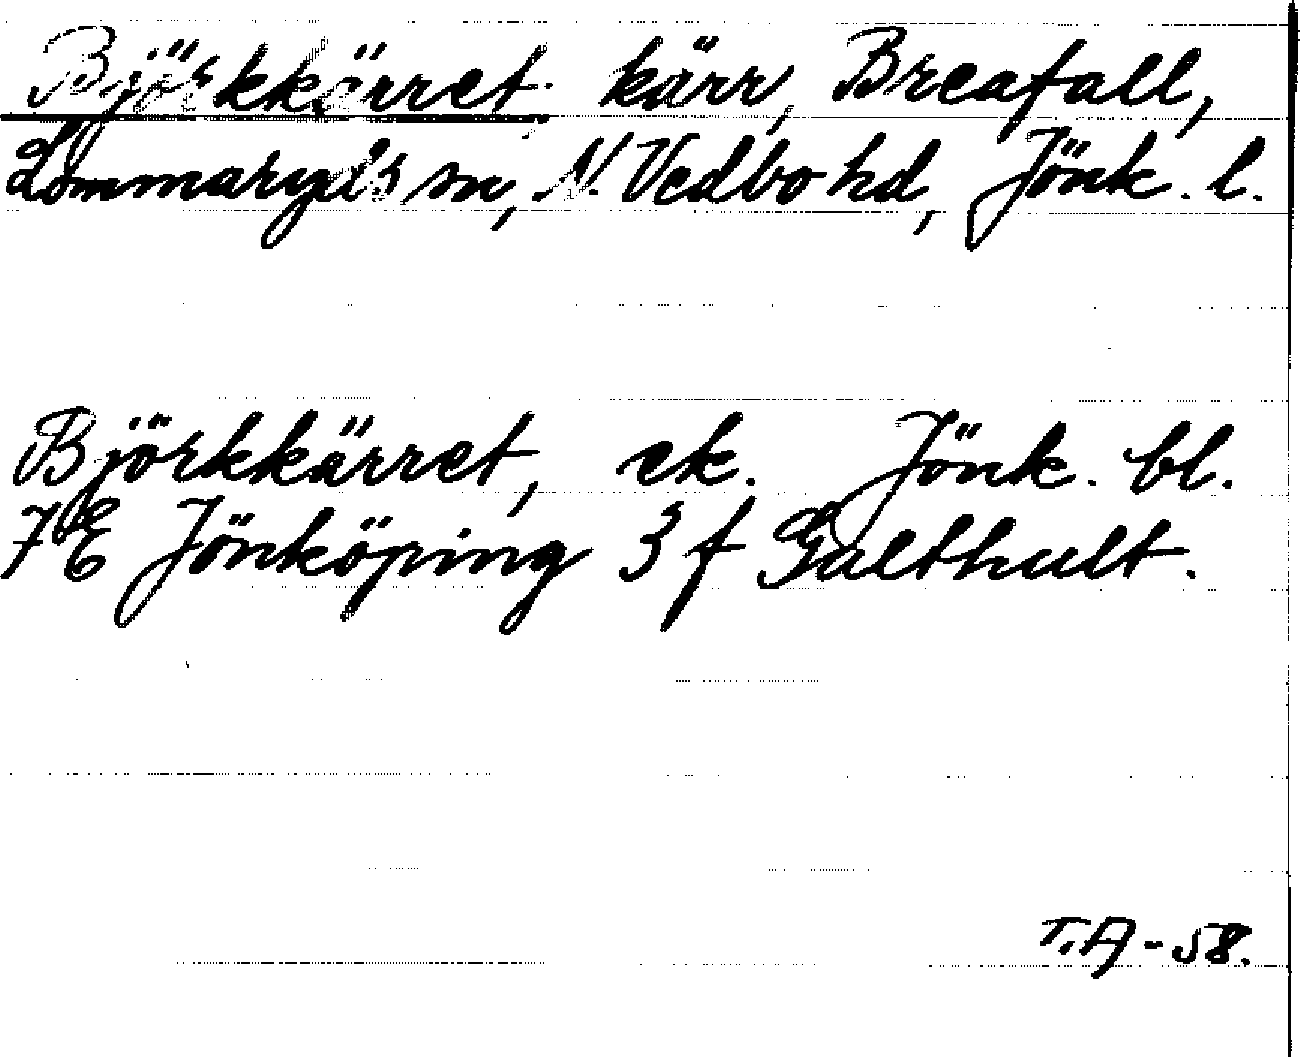 Björkkärret, kärr, Breafall,
Lommaryds sn, N. Vedbo hd, Jönk. l.
Björkkärret, ek. Jönk. bl.
7E Jönköping 3f Galthult.
T.A-58.